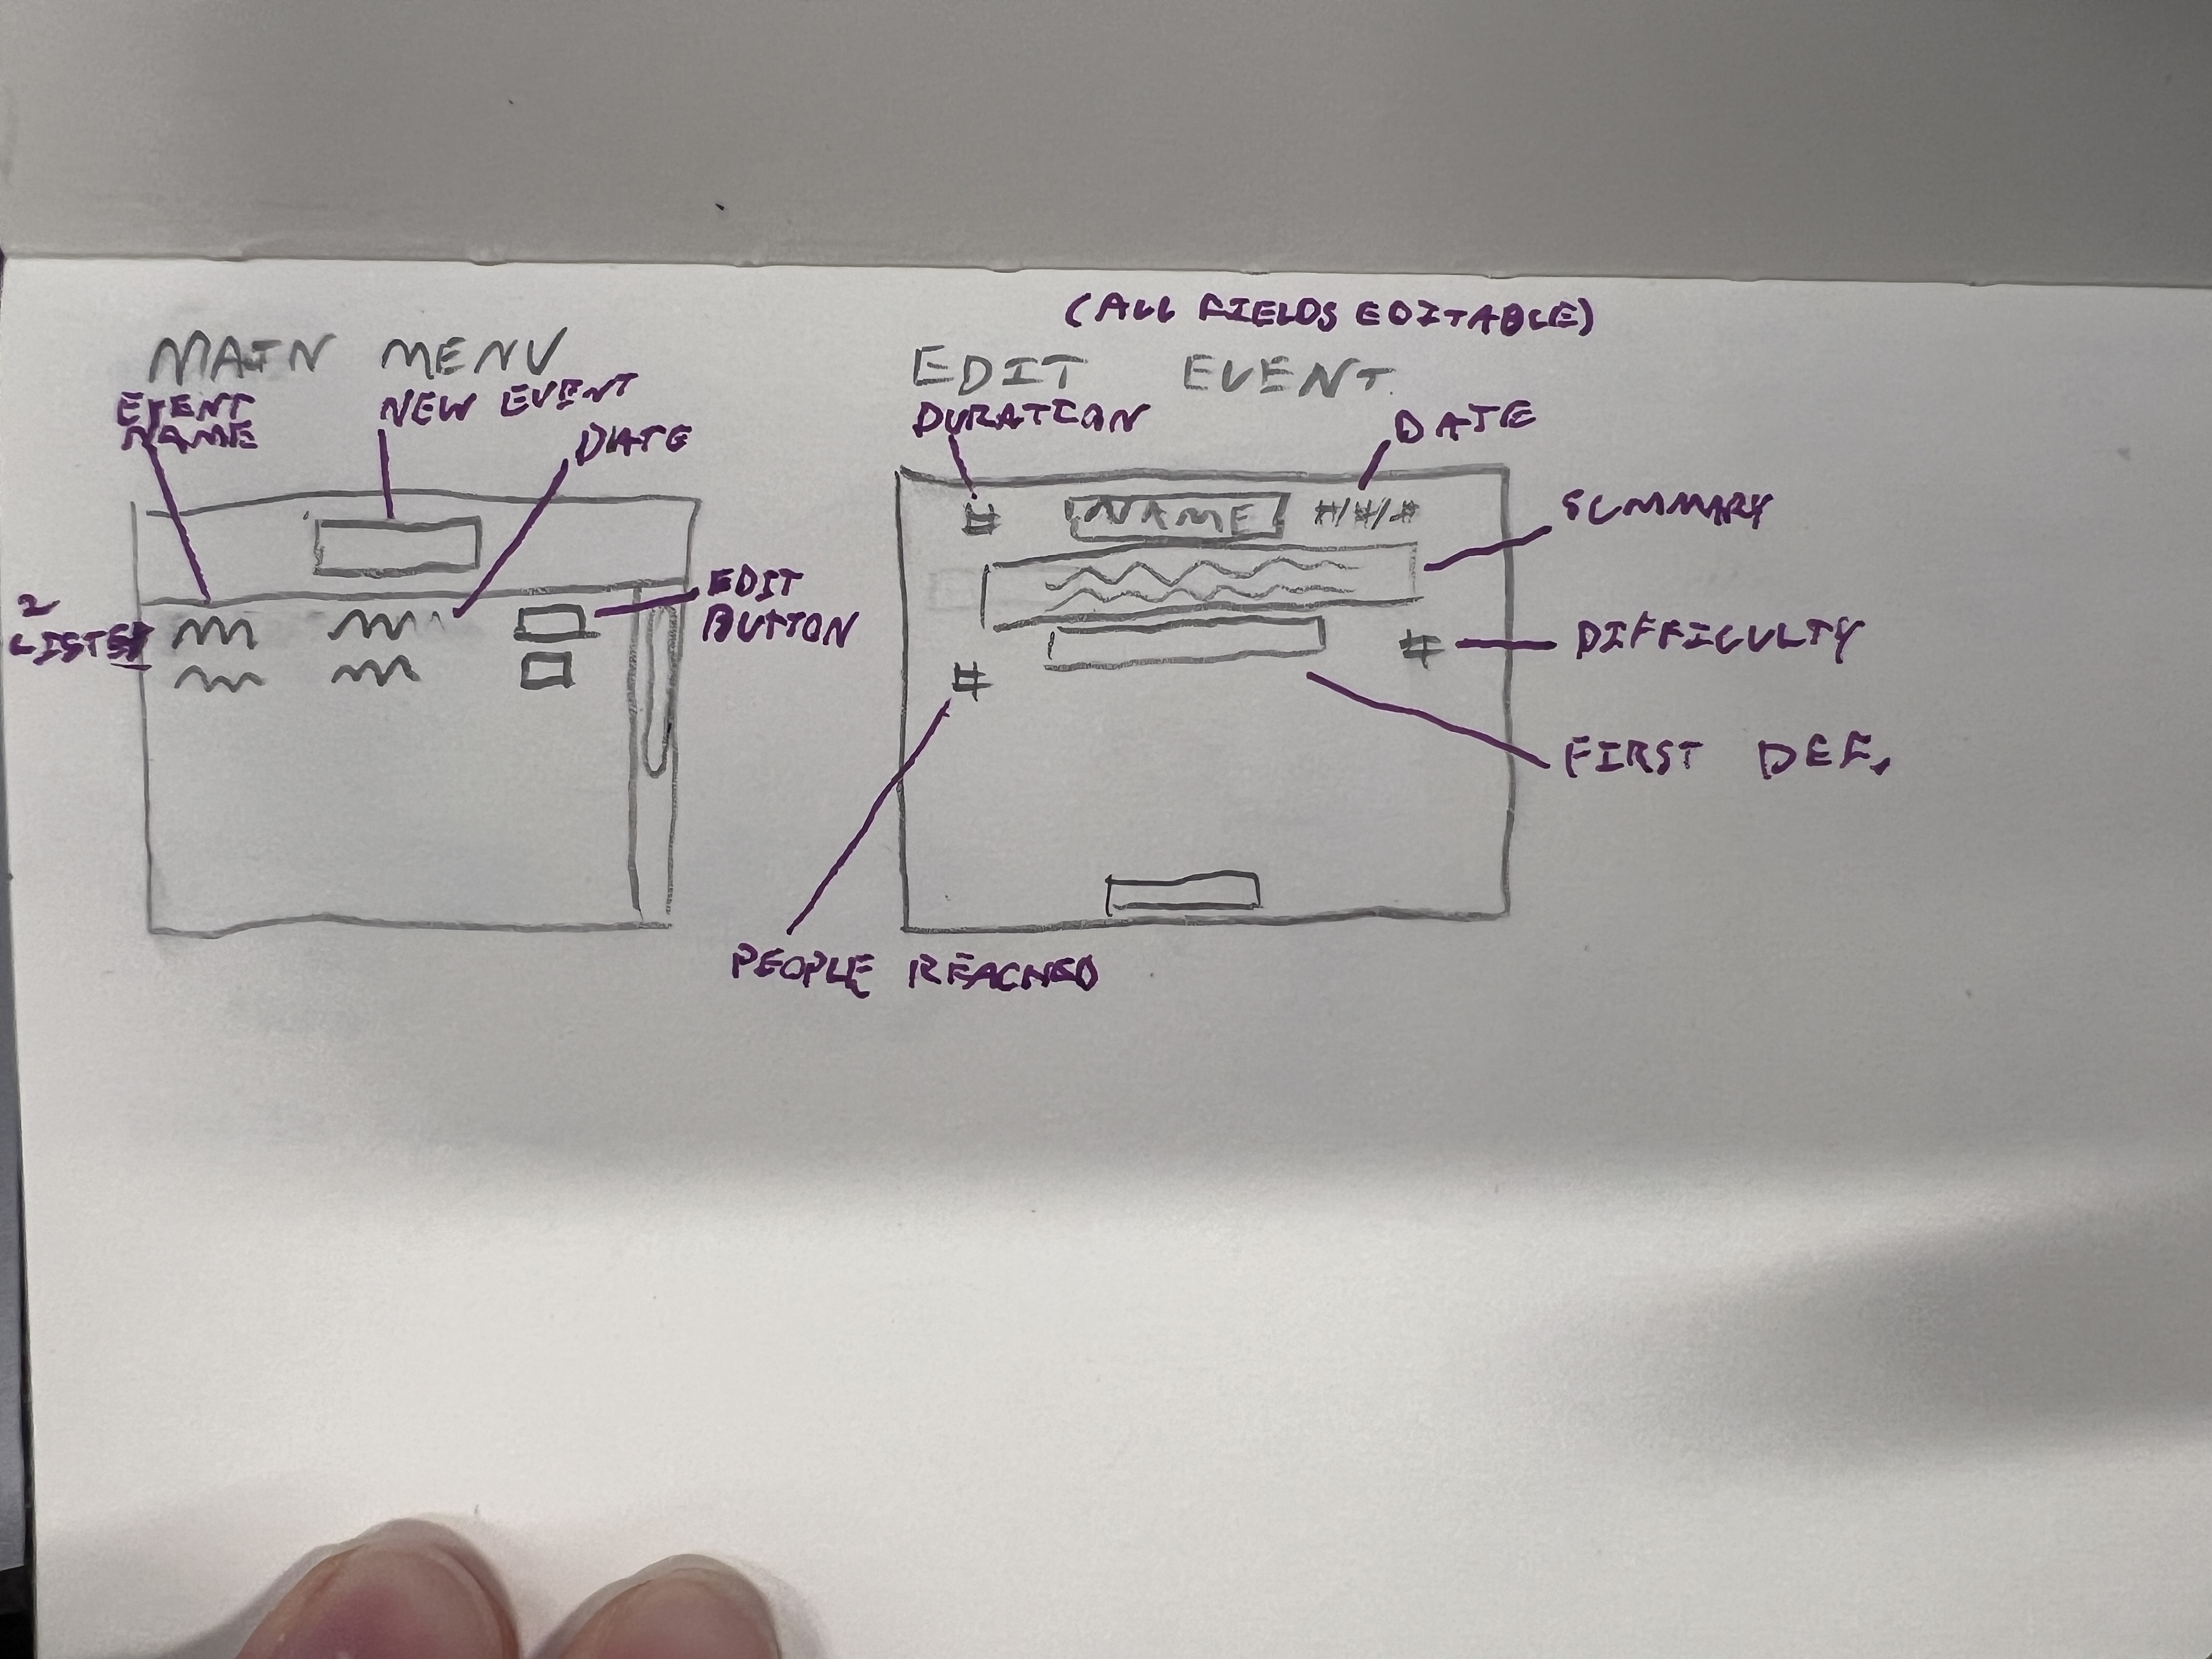 MAIN MENU
EVENT
NAME
NEW EVENT
DATE
EDIT
BUTTON
2
LISTED
(ALL FIELDS EDITABLE)
EDIT EVENT
DURATION
DATE
#
NAME
#/#/#
SUMMARY
#
DIFFICULTY
#
FIRST DEF.
PEOPLE REACHED